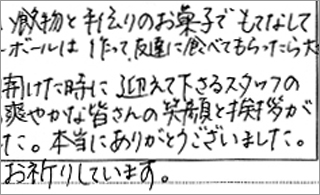 、飲物と手伝りのお菓子でもてなして
ボールは作って、友達に食べてもらったら大
開けた時に迎えて下さるスタッフの
爽やかな皆さんの笑顔と挨拶が
た。本当にありがとうございました。
お祈りしています。